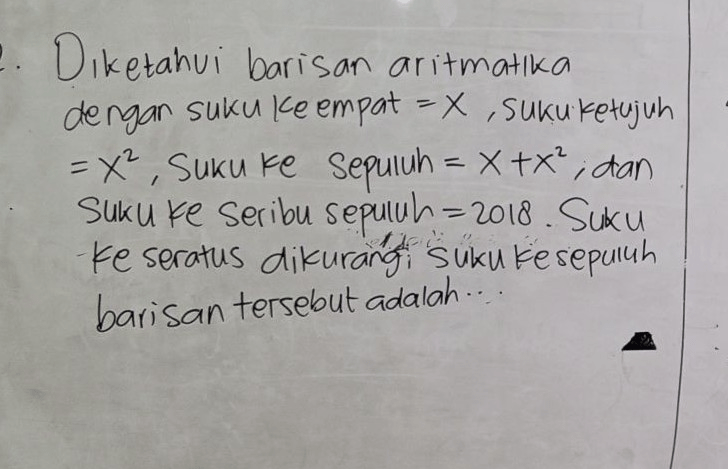 Diketahui barisan aritmatika
dengan suku ke empat = X, suku ketujuh
= X², suku ke sepuluh = X + X², dan
suku ke seribu sepuluh = 2018. Suku
ke seratus dikurangi suku ke sepuluh
barisan tersebut adalah....